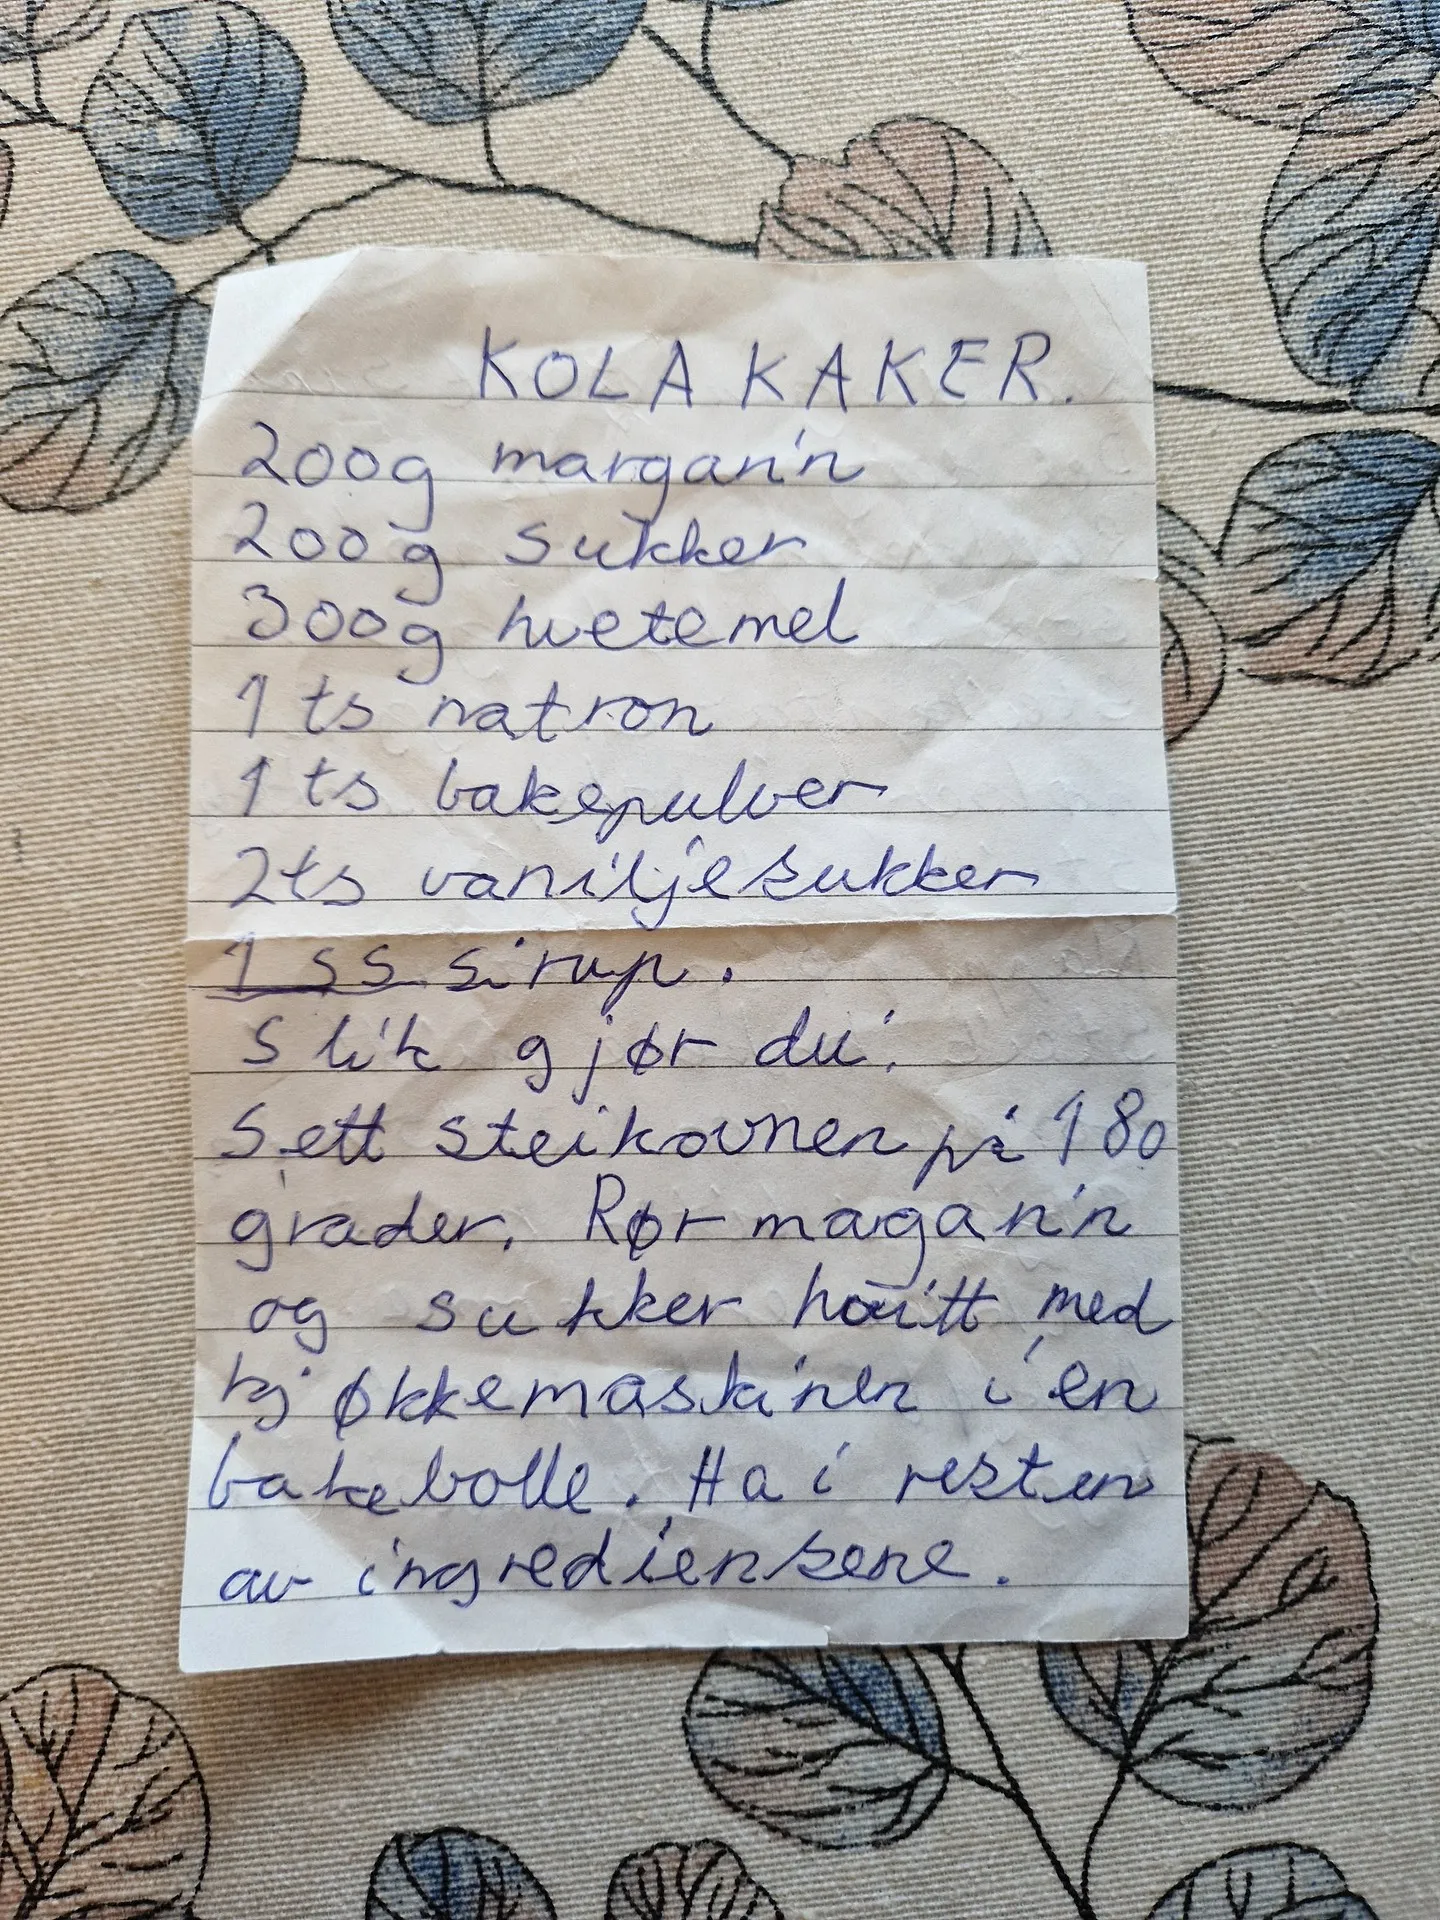 KOLA KAKER.
200g margarin
200g sukker
300g hvetemel
1 ts natron
1 ts bakepulver
2ts vaniljesukker
1 ss sirup.
Slik gjør du:
Sett steikovnen på 180
grader. Rør magarin
og sukker hvitt med
kjøkkemaskinen i en
bakebolle. Ha i resten
av ingrediensene.